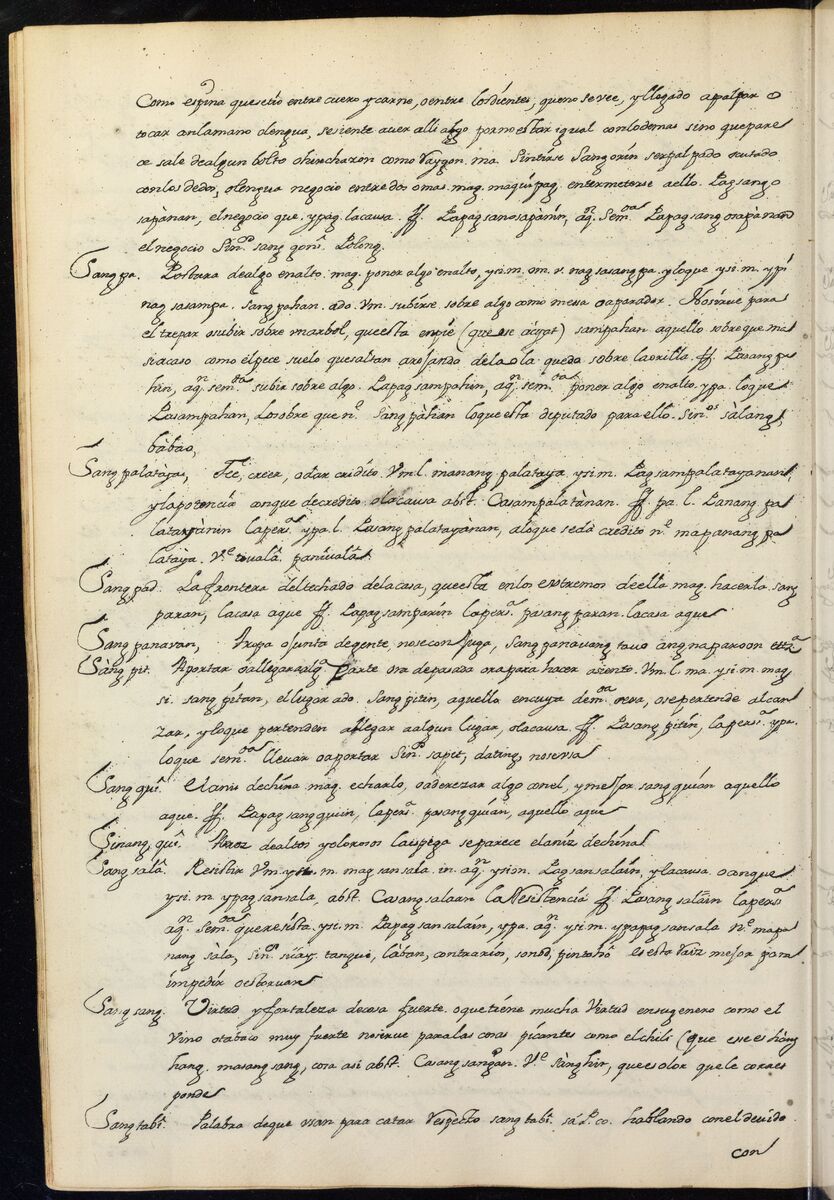 Como espina que se tio entre cuero y carne, o entre los dientes, que no se vee, y llegado a palpar o
tocar con la mano o lengua, se siente aver alli algo por no estar igual con lo demas sino que pare
ce sale de algun bolto o hinchazon como Vaygon. ma. Sintirse Sangorin ser palpado o tocado
con los dedos, o lengua negocio entre dos o mas. mag. maquipag. entermeterse a ello. Pagsango
sapanan, el negocio que. ypag. la causa. ff. Papagsanosapanin, aq.n Sem.oa Papagsangosapanan
el negocio Sin.os sang goni. Polong.
Sangpa. Postura de algo en alto. mag. poner algo en alto, ysi.m. om. v. nagsasangpa. y lo que ysi.m. ypi
nagsasampa. Sangpahan. ado. Vm. subirse sobre algo como mesa o aparador. No sirve para
el trepar o subir sobre marbol, que esta en pie (que ese acyat) sampahan aquello sobre que mas
si acaso como el pece suelo que saltan arojando de la ola queda sobre la orilla. ff. Pasangpa
hin, aq.n sem.oa subir sobre algo. Papagsampahin, aq.n sem.oa poner algo en alto. ypa. lo que
Pasampahan, lo sobre que n.e Sangpahan lo que esta diputado para ello. sin.os salang,
babao,
Sangpalataya, Fee, creer, o dar credito. Vm. l. manangpalataya ysi.m. Pagsampalatayanan,
y la potencia con que de credito o la causa abst. Casampalatanan. ff. pa. l. Panangpa
latayanin la pers.a ypa. l. Pasangpalatayanan, a lo que se da credito n.e mapanangpa
lataya. V.e touala. paniuala.
Sangpad. La frontera del techado de la casa, que esta en los extremos de ella mag. hacerla. sang
paran, la casa a que ff. Papagsamparin la pers.a pasangparan. la casa a que
Sangpanavan, Tropa o junta de gente, no se conjuga, sangpanavang tavo ang naparoon ett.a
Sangpit. Aportar o allegar a alg.a parte ora de pasada ora para hacer asiento. Vm. l. ma. ysi.m. mag
si. sangpitan, el lugar ado. Sangpitin, aquello en cuya dem.oa se va, o se pertende alcan
zar, y lo que pertenden allegar a algun lugar, o la causa. ff. Pasangpitin, la pers.a ypa.
lo que sem.oa llevar o aportar Sin.os sapit, dating, no se usa
Sangqui. El anis de china mag. echarlo, o aderezar algo con el, y mejor sangquian aquello
a que. ff. Papagsangquiin, la pers.a pasangquian, aquello a que
Sinangqui. Arroz de altos y oloroso la espiga se parece el aniz de china
Sangsala. Resistir Vm. ysi.m. magsansala. in. aq.n ysi.m. Pagsansalain, y la causa o con que
ysi.m. ypagsansala, abst. Casangsalaan la Resistencia ff. Pasangsalain la pers.a
aq.n Sem.oa que resista. ysi.m. Papagsansalain, ypa. aq.n ysi.m. ypapagsansala N.e mapa
nangsala, sin.os suay. tangui, laban, contrarios, sonod, pintoho es esta raiz mejor para
impedir o estorvar
Sangsang. Virtud y fortaleza de cosa fuerte. o que tiene mucha Virtud en su genero como el
Vino o tabaco muy fuerte no sirve para las cosas picantes como el chili (que ese es hang
hang. masangsang, cosa asi abst. Casangsangan. V.e Sanghir, que es olor que le corres
ponde
Sangtabi. Palabra de que vsan para catar Respecto sangtabi. sa P.co. hablando con el devido
con